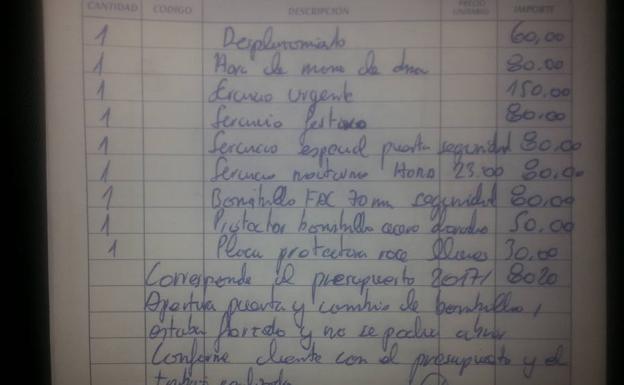 CANTIDAD CODIGO DESCRIPCIÓN PRECIO UNITARIO IMPORTE
1 Desplazamiento 60,00
1 Hora de mano de obra 80.00
1 Servicio urgente 150,00
1 Servicio festivo 80.00
1 Servicio especial puerta seguridad 80.00
1 Servicio nocturno Hora 23:00 80,00
1 Bombillo FAC 70 mm seguridad 80,00
1 Protector bombillo acero 50.00
1 Placa protectora 30.00
Corresponde al presupuesto 8020
Apertura puerta y cambio de bombillo,
estaba forzado y no se podia abrir
Conforme cliente con el presupuesto y el